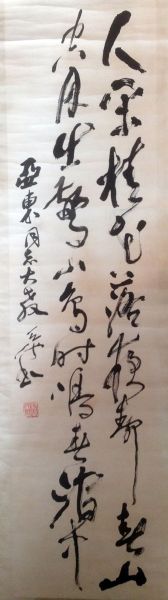 人閑桂花落夜靜春山
空月出驚山鳥时鳴春澗中
亞東同志大教